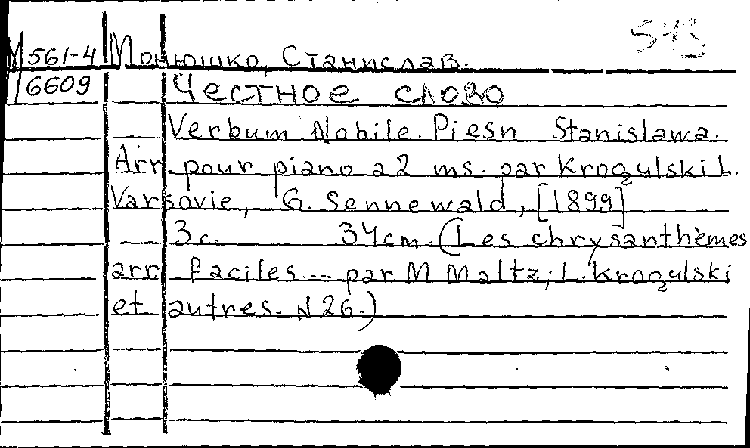 543
М561-4 Монюшко, Станислав.
16609 Честное слово
Verbum Nobile. Piesn Stanislawa.
Arr. pour piano a 2 ms. par Krogulski L.
Varsovie, G. Sennewald, [1899]
3 c. 34cm. (Les chrysanthèmes
arr faciles... par M Maltz, L. Krogulski
et autres. N 26.)